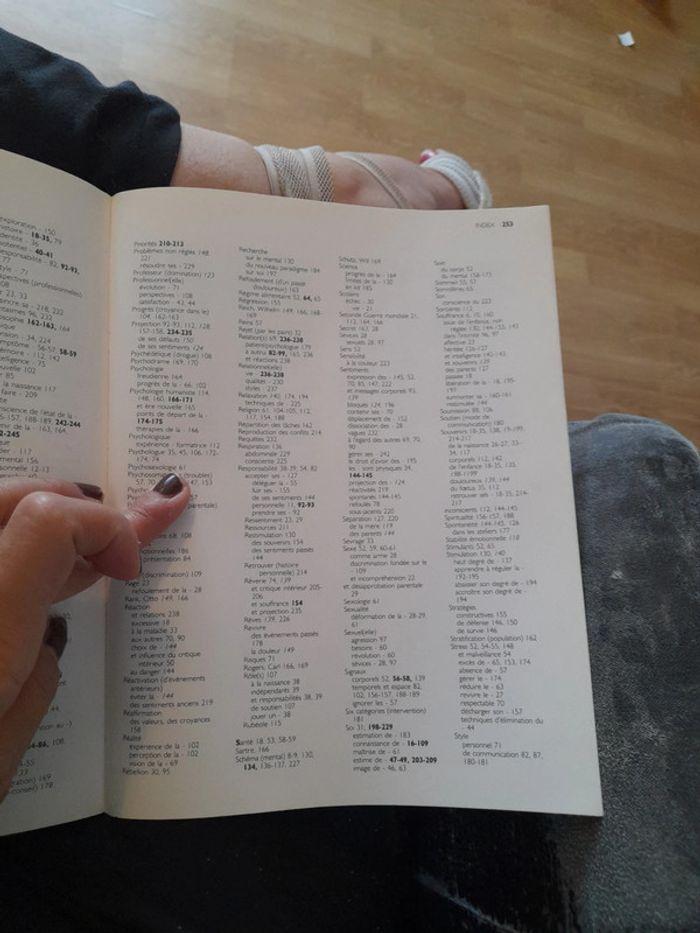 INDEX - 253
exploration - 150
histoire - 18-35, 79
identité - 36
potentiel - 40-41
responsabilité - 82, 92-93,
77
style - 71
23, 33
85
la naissance 117
faire - 209
conscience de l'état de la -
242-244
mental 156
conseil) 178
Priorités 210-213
Problèmes non réglés 148,
221
résoudre ses - 229
Professeur (domination) 123
Professionnel(elle)
évolution - 71
perspectives - 108
satisfaction - 43, 44
Progrès (croyance dans le)
104, 162-163
Projection 92-93, 112, 128,
157-158, 234-235
de ses défauts 150
de ses sentiments 124
Psychédélique (drogue) 108
Psychodrame 169, 170
Psychologie
freudienne 164
progrès de la - 66, 102
Psychologie humaniste 114,
148, 160, 166-171
et ère nouvelle 165
points de départ de la -
174-175
thérapies de la - 166
Psychologique
expérience - formatrice 112
Psychologue 35, 45, 106, 172-
174, 74
Psychosexologie 61
(troubles)
57, 70
147, 153
parentale)
68, 108
186
présentation 84
(discrimination) 109
Rage 23
refoulement de la - 28
Rank, Otto 149, 166
Réaction
et relations 238
excessive 18
à la maladie 33
aux autres 70, 90
choix de - 144
et influence du critique
intérieur 50
au danger 144
Réactivation (d'événements
antérieurs)
éviter la - 144
des sentiments anciens 219
Réaffirmation
des valeurs, des croyances
158
Réalité
expérience de la - 102
perception de la - 102
vision de la - 69
Rébellion 30, 95
Recherche
sur le mental 130
du nouveau paradigme 184
sur soi 197
Refoulement (d'un passé
douloureux) 163
Régime alimentaire 52, 64, 65
Régression 155
Reich, Wilhelm 149, 166, 168-
169
Reins 57
Rejet (par les pairs) 32
Relation(s) 69, 236-238
patient/psychologue 179
à autrui 82-99, 165, 236
et réactions 238
Relationnel(elle)
vie - 236-238
qualités - 230
styles - 237
Relaxation 140, 174, 194
techniques de - 225
Religion 61, 104, 105, 112,
117, 154, 188
Répartition des tâches 162
Reproduction des conflits 214
Requêtes 232
Respiration 136
abdominale 229
consciente 225
Responsabilité 38-39, 54, 82
accepter ses - 127
déléguer la - 55
fuir ses - 155
de ses sentiments 144
personnelle 11, 92-93
prendre ses - 92
Ressentiment 23, 29
Ressources 211
Restimulation 130
des souvenirs 154
des sentiments passés
144
Retrouver (histoire
personnelle) 214
Rêverie 74, 139
et critique intérieur 205-
206
et souffrance 154
et projection 235
Rêves 139, 226
Revivre
des événements passés
178
la douleur 149
Risques 71
Rogers, Carl 166, 169
Rôle(s) 107
à la naissance 38
indépendants 39
et responsabilités 38, 39
de soutien 107
jouer un - 38
Rubéole 115
Santé 18, 53, 58-59
Sartre, 166
Schéma (mental) 8-9, 130,
134, 136-137, 227
Schutz, Will 169
Science
progrès de la - 164
limites de la - 130
en kit 185
Scolaire
échec - 30
vie - 21
Seconde Guerre mondiale 21,
112, 164, 166
Secret 163, 28
Sévices 28
sexuels 28, 97
Sens 52
Sensibilité
à la couleur 223
Sentiments
expression des - 145, 52,
70, 85, 147, 222
et messages corporels 93,
139
bloqués 124, 196
contenir ses - 70
déplacement de - 152
dissociation des - 28
vagues 232
à l'égard des autres 69, 70,
90
gérer ses - 242
le droit d'avoir des - 195
les - sont physiques 34,
144-145
projection des - 124
réactivés 219
spontanés 144-145
refoulés 78
sous-jacents 220
Séparation 127, 220
de la mère 119
des parents 144
Sevrage 33
Sexe 52, 59, 60-61
comme arme 28
discrimination fondée sur le
- 109
et incompréhension 22
et désapprobation parentale
29
Sexologie 61
Sexualité
déformation de la - 28-29,
61
Sexuel(elle)
agression 97
besoins - 60
révolution - 60
sévices - 28, 97
Signaux
corporels 52, 56-58, 139
temporels et espace 82,
102, 156-157, 188-189
ignorer les - 57
Six catégories (intervention)
181
Soi 31, 198-229
estimation de - 183
connaissance de - 16-109
maîtrise de - 61
estime de - 47-49, 203-209
image de - 46, 63
Soin
du corps 52
du mental 158-175
Sommeil 55, 57
Somnifères 65
Son
conscience du 223
Sorcières 112
Souffrance 6, 70, 160
issue de l'enfance, non
réglée 130, 144-153, 143
dans l'intimité 96, 97
affective 23
héritée 126-127
et intelligence 142-143
et souvenirs 139
des parents 127
passée 18
libération de la - 18, 195-
197
surmonter sa - 160-161
restimulée 144
Soumission 88, 106
Soutien (mode de
communication) 180
Souvenirs 18-35, 138, 19, -199,
214-217
de la naissance 26-27, 33-
34, 117
corporels 112, 142
de l'enfance 18-35, 135,
198-1199
douloureux 139, 144
du fœtus 35, 112
retrouver ses - 18-35, 214-
217
inconscients 112, 144-145
Spiritualité 156-157, 188
Spontanéité 144-145, 126
dans les ateliers 177
Stabilité émotionnelle 118
Stimulants 52, 65
Stimulation 130, 140
haut degré de - 137
apprendre à réguler la -
192-195
abaisser son degré de - 194
accroître son degré de -
194
Stratégies
constructives 155
de défense 146, 150
de survie 146
Stratification (population) 162
Stress 52, 54-55, 148
et malveillance 54
excès de - 65, 153, 174
absence de - 57
gérer le - 174
réduire le - 63
revivre le - 27
respectable 70
décharger son - 157
techniques d'élimination du
- 44
Style
personnel 71
de communication 82, 87,
180-181